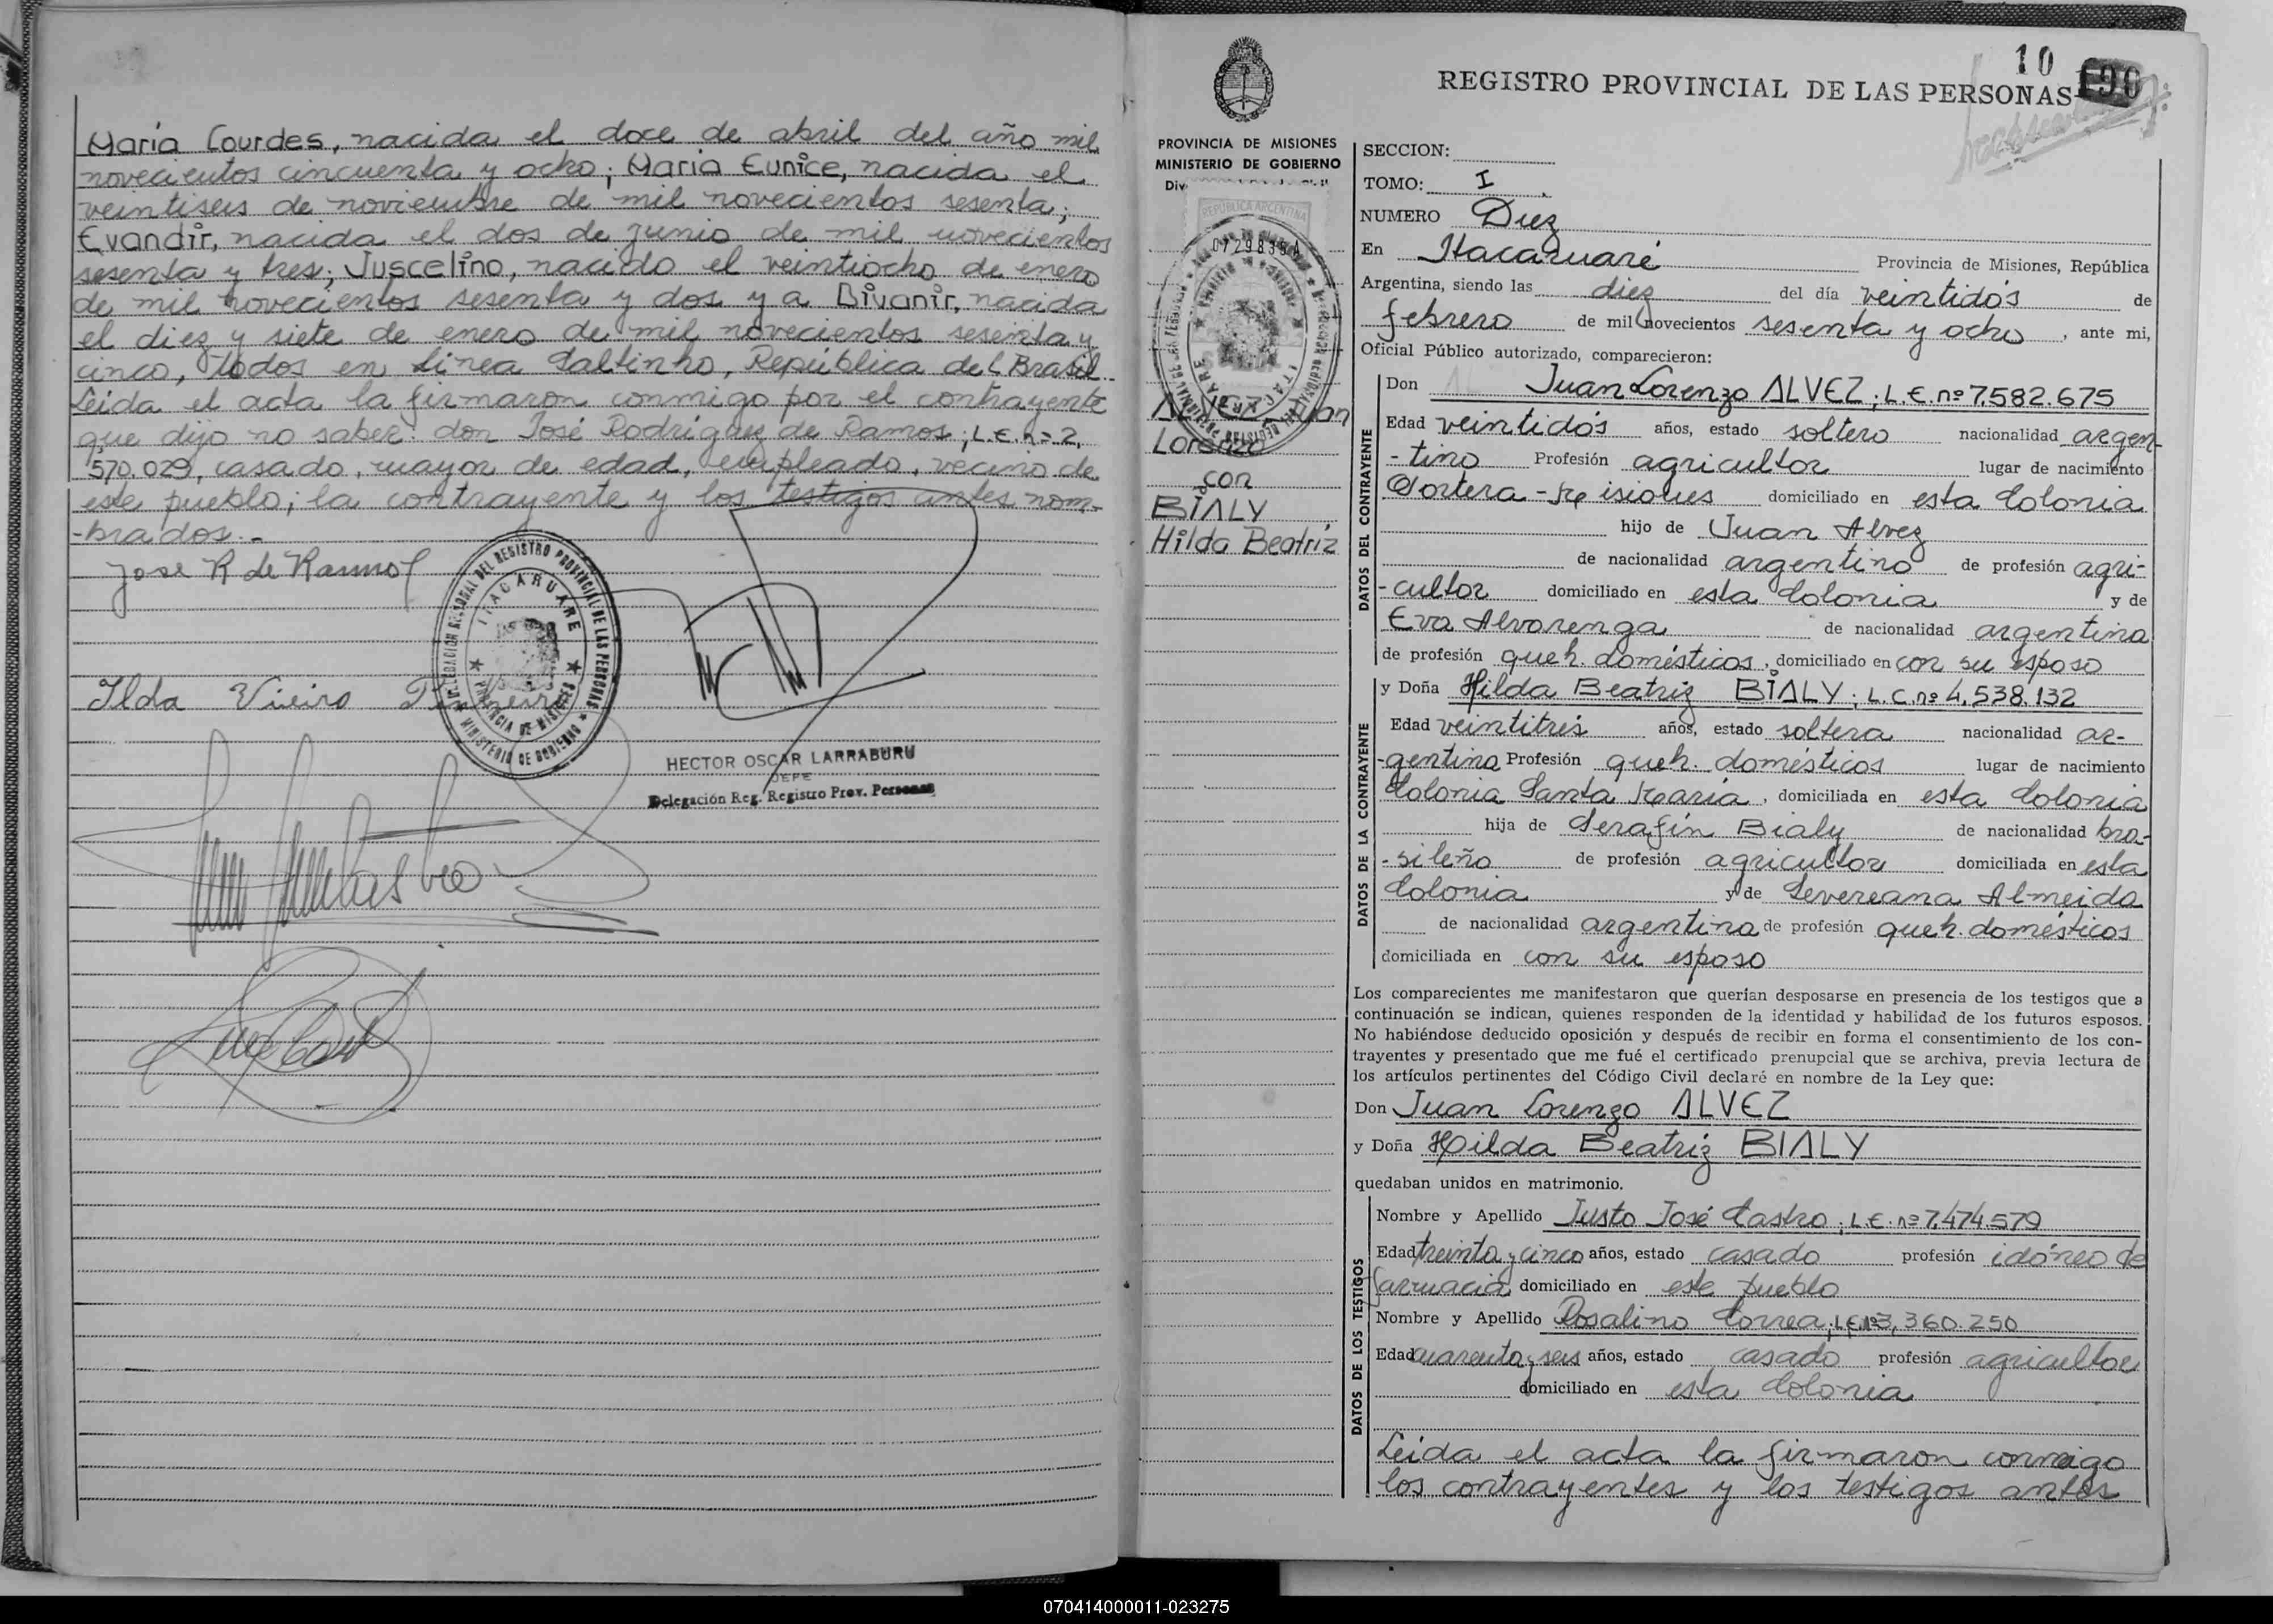 Maria Lourdes, nacida el doce de abril del año mil
novecientos cincuenta y ocho; Maria Eunice, nacida el
veintiseis de noviembre de mil novecientos sesenta;
Evandir, nacida el dos de junio de mil novecientos
sesenta y tres; Juscelino, nacido el veintiocho de enero
de mil novecientos sesenta y dos y a Bivanir, nacida
el diez y siete de enero de mil novecientos sesenta y
cinco, todos en Linea Saltinho, República del Brasil.
Leida el acta la firmaron conmigo por el contrayente
que dijo no saber: don José Rodriguez de Ramos; L.E. n= 2.
570.029, casado, mayor de edad, empleado, vecino de
este pueblo; la contrayente y los testigos antes nom-
-brados.-
Jose R de Ramos
DELEGACION REGIONAL DEL REGISTRO PROVINCIAL DE LAS PERSONAS
ITACARUARE
PROVINCIA DE MISIONES
MINISTERIO DE GOBIERNO
Ilda Vieira
HECTOR OSCAR LARRABURU
JEFE
Delegación Reg. Registro Prov. Personas
10
190
REGISTRO PROVINCIAL DE LAS PERSONAS
PROVINCIA DE MISIONES
MINISTERIO DE GOBIERNO
REPUBLICA ARGENTINA
ALVEZ Juan
Lorenzo
con
BIALY
Hilda Beatriz
SECCION:
TOMO: I
NUMERO Diez
En Itacaruaré Provincia de Misiones, República
Argentina, siendo las diez del día veintidós de
febrero de mil novecientos sesenta y ocho, ante mi,
Oficial Público autorizado, comparecieron:
DATOS DEL CONTRAYENTE
Don Juan Lorenzo ALVEZ; L.E. nº 7.582.675
Edad veintidós años, estado soltero nacionalidad argen-
-tino Profesión agricultor lugar de nacimiento
Tortera - Misiones domiciliado en esta Colonia
hijo de Juan Alvez
de nacionalidad argentino de profesión agri-
-cultor domiciliado en esta Colonia y de
Eva Alvarenga de nacionalidad argentina
de profesión queh. domésticos, domiciliado en con su esposo
DATOS DE LA CONTRAYENTE
y Doña Hilda Beatriz BIALY; L.C. nº 4.538.132
Edad veintitrés años, estado soltera nacionalidad ar-
-gentina Profesión queh. domésticos lugar de nacimiento
Colonia Santa Maria, domiciliada en esta Colonia
hija de Serafín Bialy de nacionalidad bra-
-sileño de profesión agricultor domiciliada en esta
Colonia y de Severeana Almeida
de nacionalidad argentina de profesión queh. domésticos
domiciliada en con su esposo
Los comparecientes me manifestaron que querían desposarse en presencia de los testigos que a
continuación se indican, quienes responden de la identidad y habilidad de los futuros esposos.
No habiéndose deducido oposición y después de recibir en forma el consentimiento de los con-
trayentes y presentado que me fué el certificado prenupcial que se archiva, previa lectura de
los artículos pertinentes del Código Civil declaré en nombre de la Ley que:
Don Juan Lorenzo ALVEZ
y Doña Hilda Beatriz BIALY
quedaban unidos en matrimonio.
DATOS DE LOS TESTIGOS
Nombre y Apellido Justo José Castro; L.E. nº 7.474.579
Edad treinta y cinco años, estado casado profesión idóneo de
farmacia domiciliado en este pueblo
Nombre y Apellido Rosalino Correa; L.E. nº 3,360.250
Edad cuarenta y seis años, estado casado profesión agricultor
domiciliado en esta Colonia
Leida el acta la firmaron conmigo
los contrayentes y los testigos antes
070414000011-023275